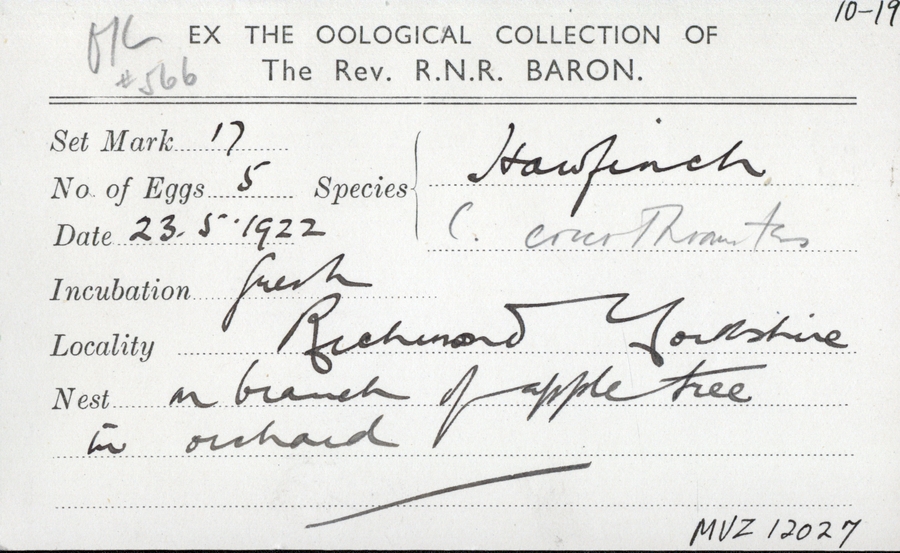 10-19
EX THE OOLOGICAL COLLECTION OF
#566
The Rev. R.N.R. BARON.
Set Mark 17
Hawfinch
No. of Eggs 5 Species
Date 23.5.1922
C. coccothraustes
Incubation fresh
Locality Richmond Yorkshire
Nest on branch of apple tree
in orchard
MVZ 12027